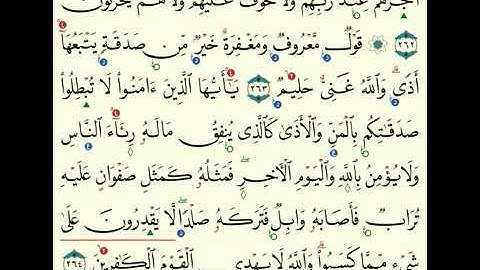 أَجْرُهُمْ عِندَ رَبِّهِمْ وَلَا خَوْفٌ عَلَيْهِمْ وَلَا هُمْ يَحْزَنُونَ
٢٦٢ قَوْلٌ مَّعْرُوفٌ وَمَغْفِرَةٌ خَيْرٌ مِّن صَدَقَةٍ يَتْبَعُهَا
أَذًى وَاللَّهُ غَنِىٌّ حَلِيمٌ ٢٦٣ يَٰٓأَيُّهَا الَّذِينَ ءَامَنُوا۟ لَا تُبْطِلُوا۟
صَدَقَٰتِكُم بِالْمَنِّ وَالْأَذَىٰ كَالَّذِى يُنفِقُ مَالَهُۥ رِئَآءَ النَّاسِ
وَلَا يُؤْمِنُ بِاللَّهِ وَالْيَوْمِ الْأٓخِرِ فَمَثَلُهُۥ كَمَثَلِ صَفْوَانٍ عَلَيْهِ
تُرَابٌ فَأَصَابَهُۥ وَابِلٌ فَتَرَكَهُۥ صَلْدًا لَّا يَقْدِرُونَ عَلَىٰ
شَىْءٍ مِّمَّا كَسَبُوا۟ وَاللَّهُ لَا يَهْدِى الْقَوْمَ الْكَٰفِرِينَ ٢٦٤